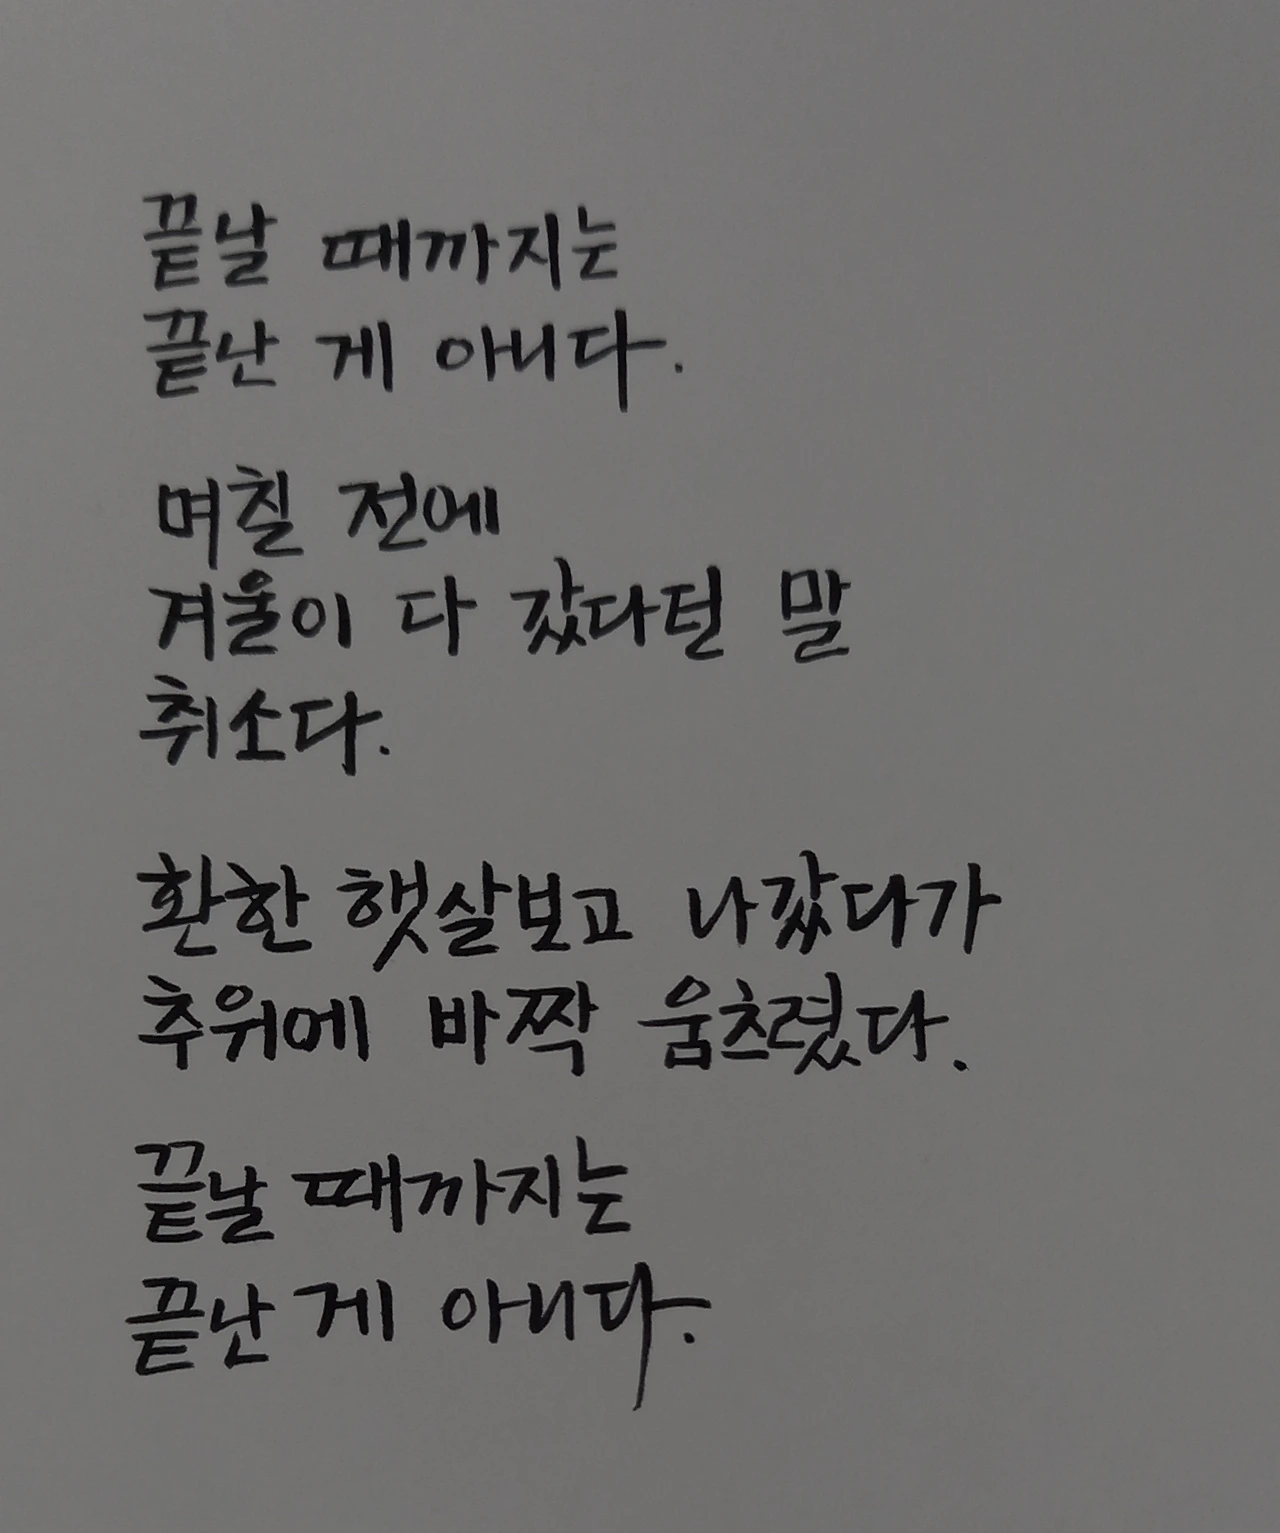 끝날 때까지는
끝난 게 아니다.
며칠 전에
겨울이 다 갔다던 말
취소다.
환한 햇살보고 나갔다가
추위에 바짝 움츠렸다.
끝날 때까지는
끝난 게 아니다.